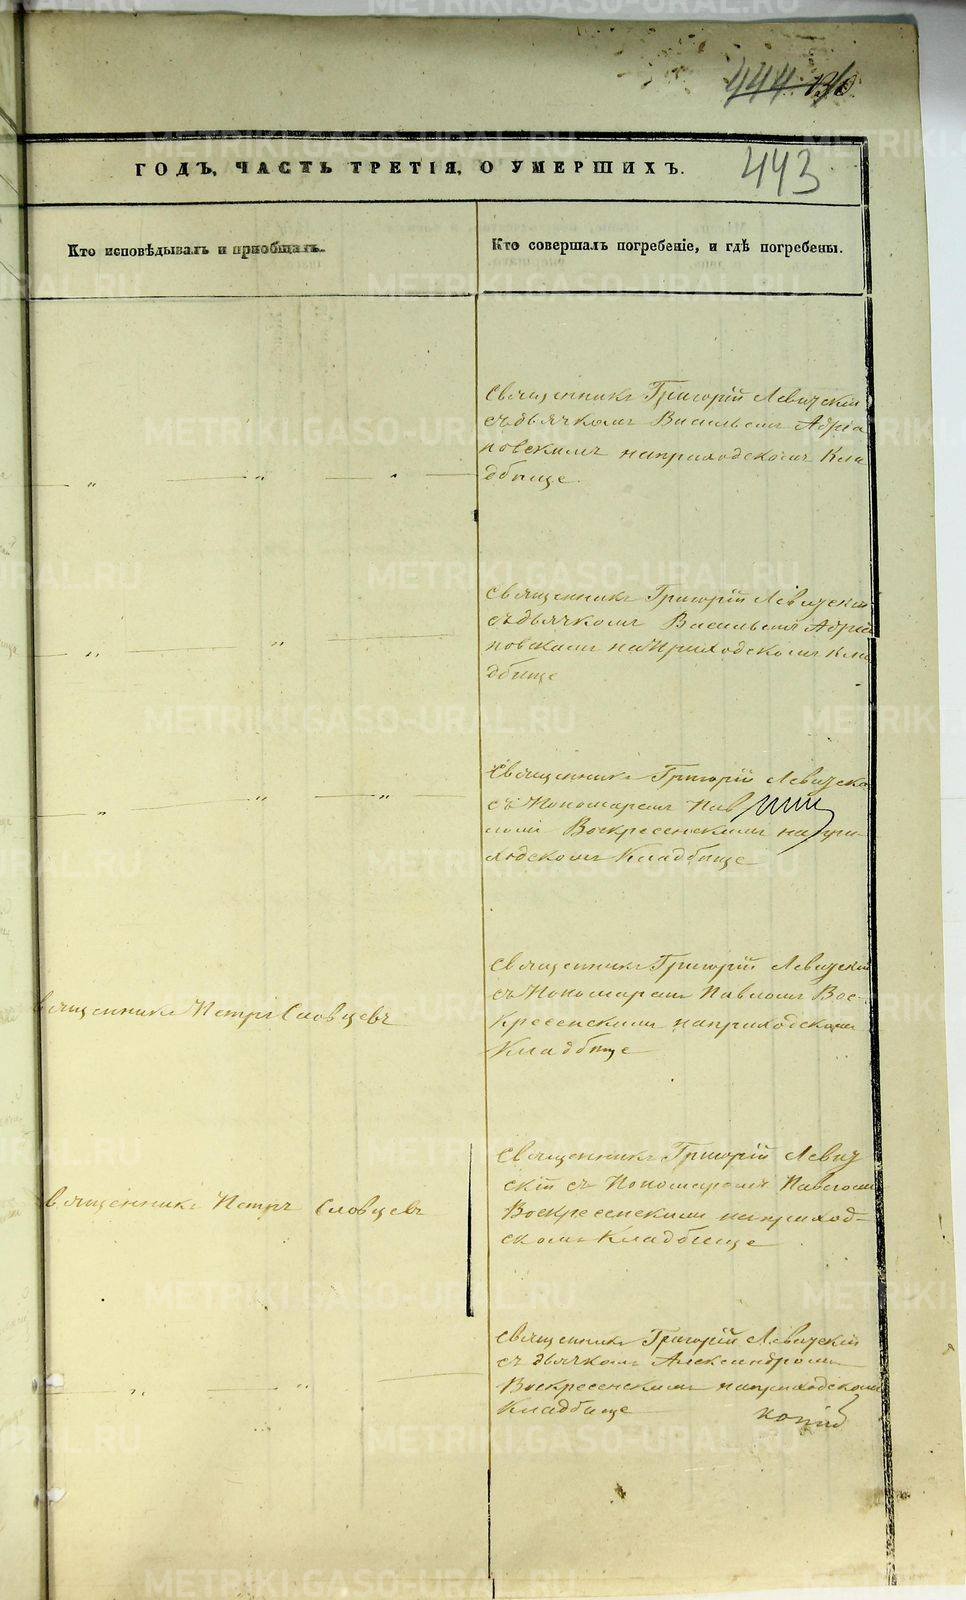 444
443
ГОДЪ, ЧАСТЬ ТРЕТІЯ, О УМЕРШИХЪ.
Кто исповѣдывалъ и пріобщалъ.
Кто совершалъ погребеніе, и гдѣ погребены.
Священникъ Григорій Левицкій
съ дьячкомъ Васильемъ Адріа
новскимъ на приходскомъ Кла
дбище.
Священникъ Григорій Левицкій
съ дьячкомъ Васильемъ Адріа
новскимъ на Приходскомъ Кла
дбище
Священникъ Григорій Левицкі
съ Пономаремъ Пав
ломъ Воскресенскимъ на при
ходскомъ Кладбище
Священникъ Петръ Словцевъ
Священникъ Григорій Левицкій
съ Пономаремъ Павломъ Вос-
кресенскимъ на приходскомъ
Кладбище
вященникъ Петръ Словцевъ
Священникъ Григорій Левиц
скій съ Пономаремъ Павломъ
Воскресенскимъ на приход-
скомъ Кладбище
Священникъ Григорій Левицкій
съ дьячкомъ Александромъ
Воскресенскимъ на приходскомъ
Кладбище
METRIKI.GASO-URAL.RU